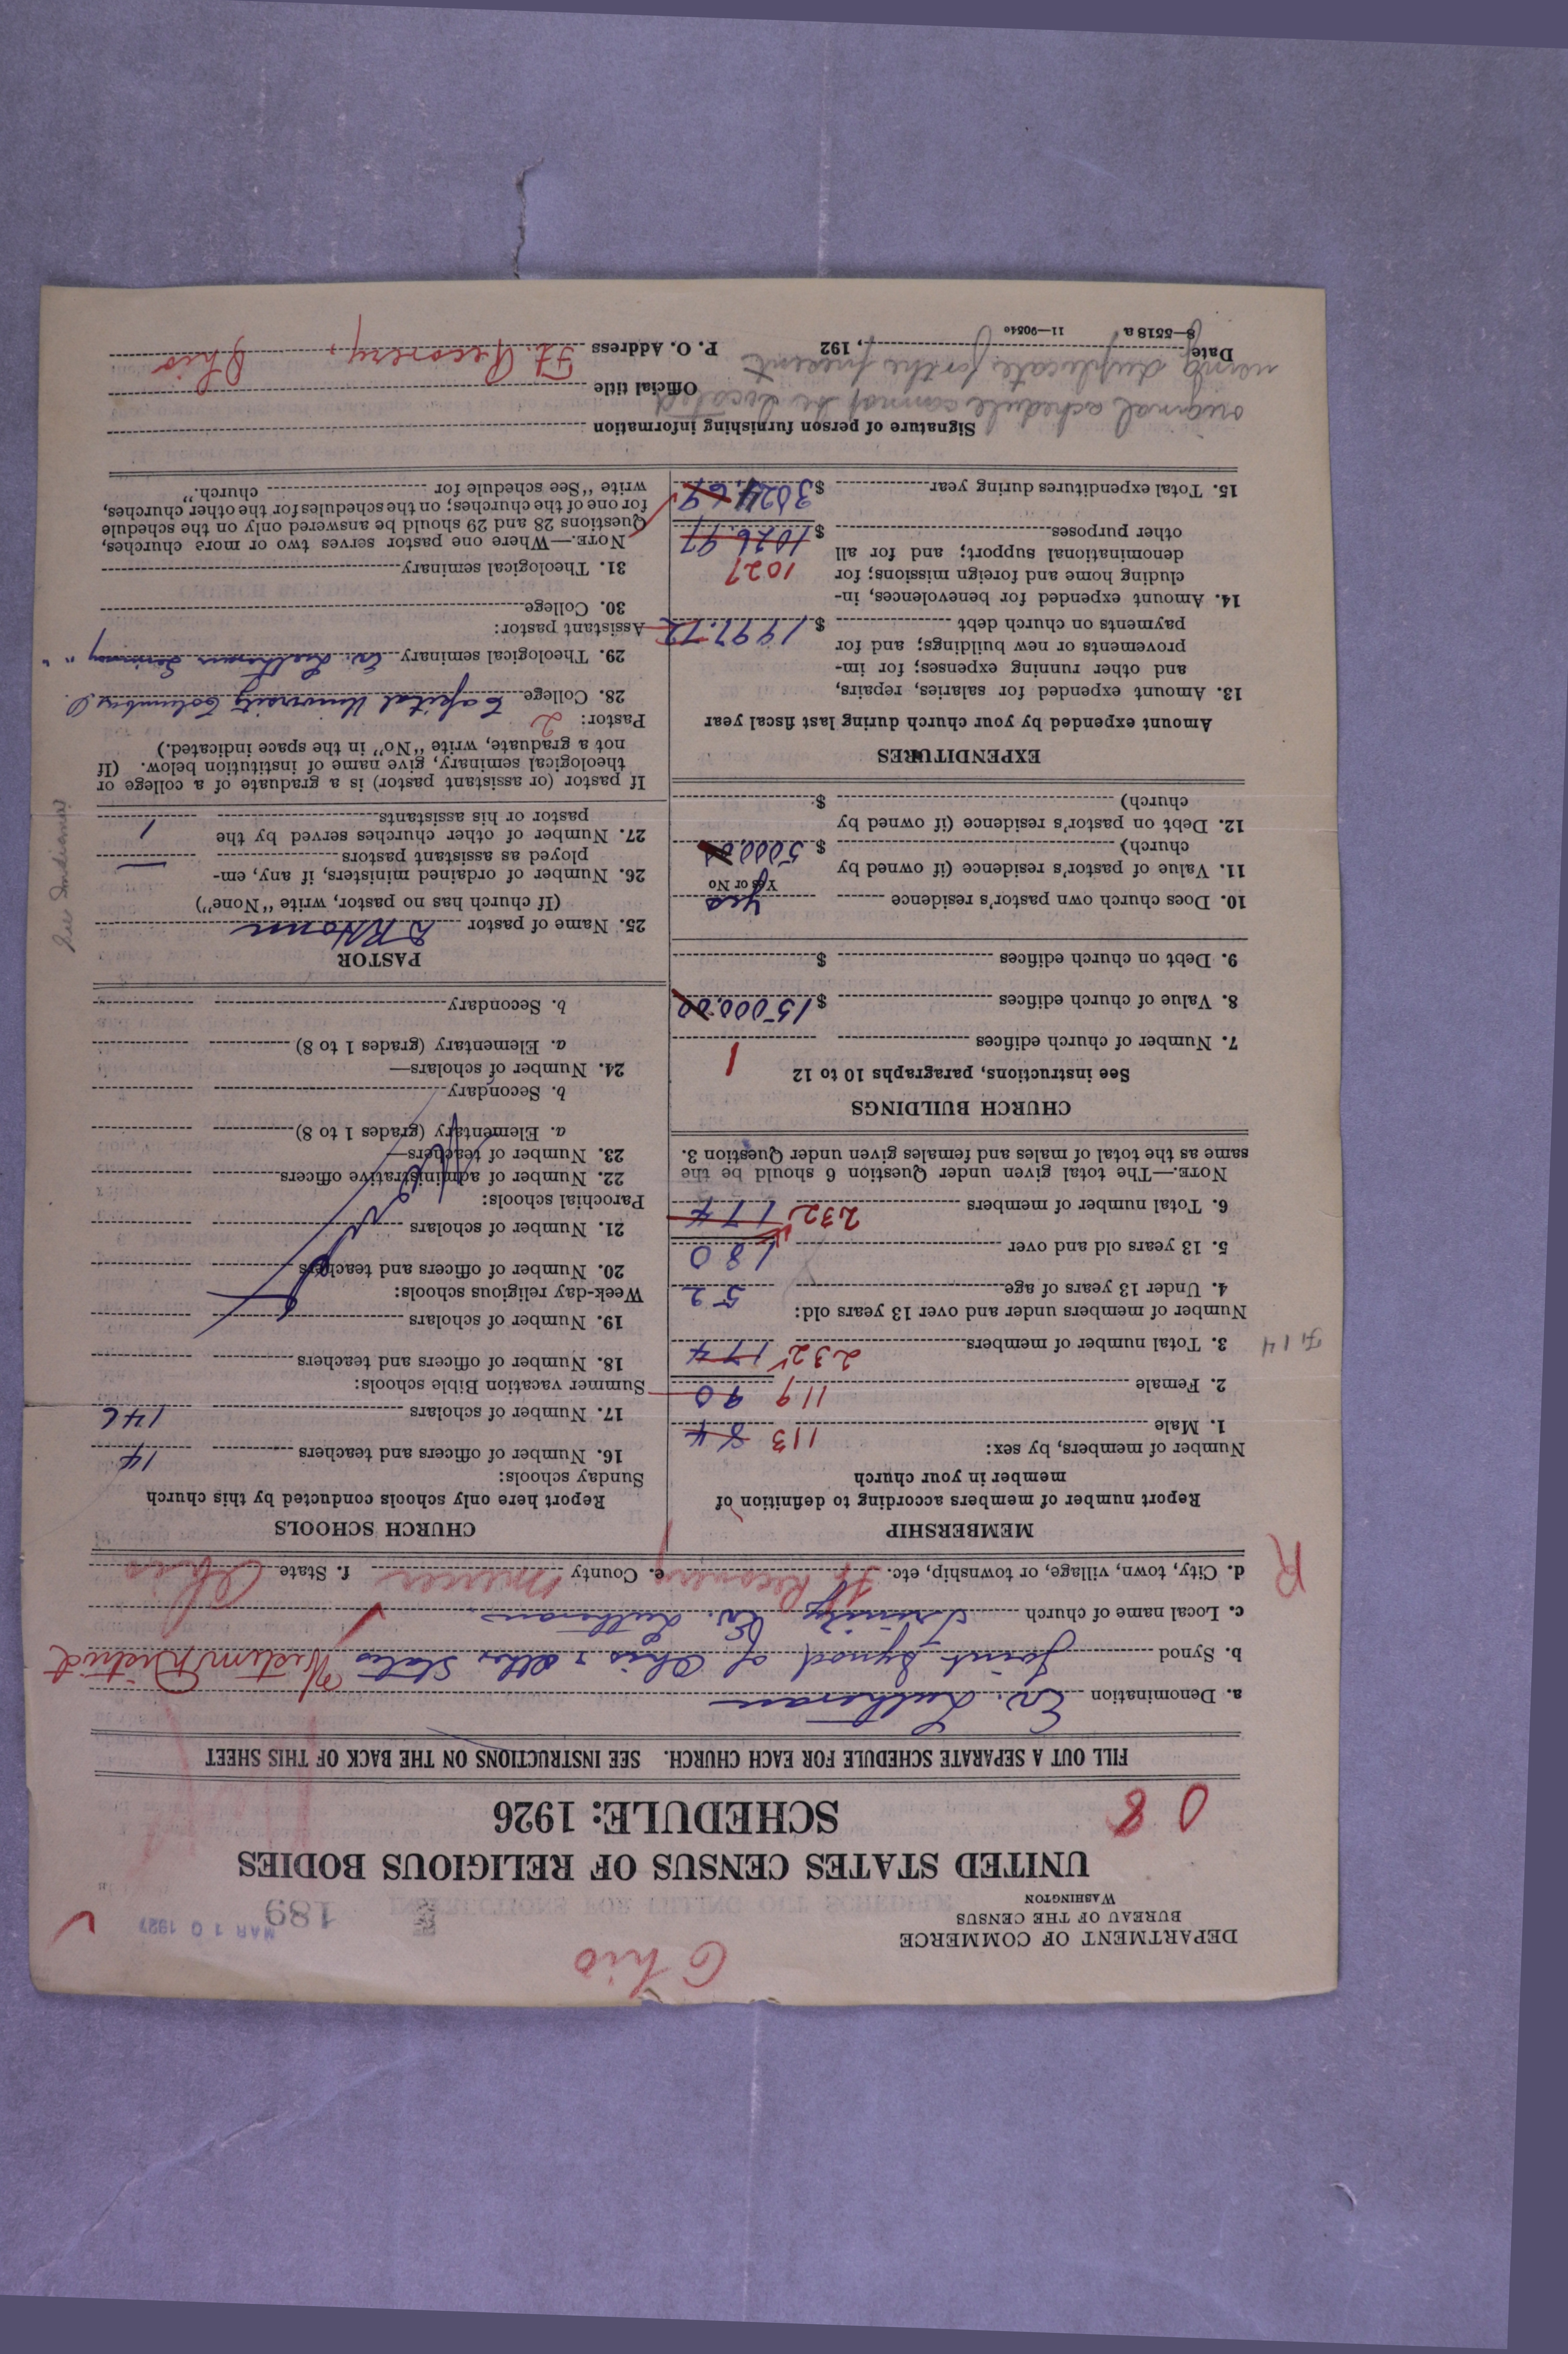 Ohio
DEPARTMENT OF COMMERCE
BUREAU OF THE CENSUS
WASHINGTON
189
MAR 10 1927
UNITED STATES CENSUS OF RELIGIOUS BODIES
SCHEDULE: 1926
0 8
FILL OUT A SEPARATE SCHEDULE FOR EACH CHURCH. SEE INSTRUCTIONS ON THE BACK OF THIS SHEET
a. Denomination Ev. Lutheran
b. Synod Joint Synod of Ohio & other States Western District
c. Local name of church Trinity Ev. Lutheran
d. City, town, village, or township, etc. Ft Recovery e. County Mercer f. State Ohio
R
MEMBERSHIP
Report number of members according to definition of
member in your church
Number of members, by sex:
1. Male 113 84
2. Female 119 90
3. Total number of members 232 174
F 14
Number of members under and over 13 years old:
4. Under 13 years of age 52
5. 13 years old and over 180
6. Total number of members 232 174
NOTE.—The total given under Question 6 should be the
same as the total of males and females given under Question 3.
CHURCH BUILDINGS
See instructions, paragraphs 10 to 12
7. Number of church edifices 1
8. Value of church edifices $15000.00
9. Debt on church edifices $
10. Does church own pastor's residence Yes
Yes or No
11. Value of pastor's residence (if owned by
church) $5000.00
12. Debt on pastor's residence (if owned by
church) $
EXPENDITURES
Amount expended by your church during last fiscal year
13. Amount expended for salaries, repairs,
and other running expenses; for im-
provements or new buildings; and for
payments on church debt $1997.72
14. Amount expended for benevolences, in-
cluding home and foreign missions; for
denominational support; and for all
other purposes $1026.97
1027
15. Total expenditures during year $3024.69
CHURCH SCHOOLS
Report here only schools conducted by this church
Sunday schools:
16. Number of officers and teachers 14
17. Number of scholars 146
Summer vacation Bible schools:
18. Number of officers and teachers
19. Number of scholars
Week-day religious schools:
20. Number of officers and teachers
21. Number of scholars
Parochial schools:
22. Number of administrative officers
23. Number of teachers—
a. Elementary (grades 1 to 8)
b. Secondary
24. Number of scholars—
a. Elementary (grades 1 to 8)
b. Secondary
PASTOR
25. Name of pastor
(If church has no pastor, write "None")
26. Number of ordained ministers, if any, em-
ployed as assistant pastors —
27. Number of other churches served by the
pastor or his assistants 1
See Indiana
If pastor (or assistant pastor) is a graduate of a college or
theological seminary, give name of institution below. (If
not a graduate, write "No" in the space indicated.)
Pastor: 2
28. College Capital University Columbus O.
29. Theological seminary Ev. Lutheran Seminary " "
Assistant pastor:
30. College
31. Theological seminary
NOTE.—Where one pastor serves two or more churches,
Questions 28 and 29 should be answered only on the schedule
for one of the churches; on the schedules for the other churches,
write "See schedule for church."
Signature of person furnishing information
original schedule cannot be located
Official title
using duplicate for the present
Date , 192 P. O. Address Ft. Recovery, Ohio
8—5518 a 11—9054c